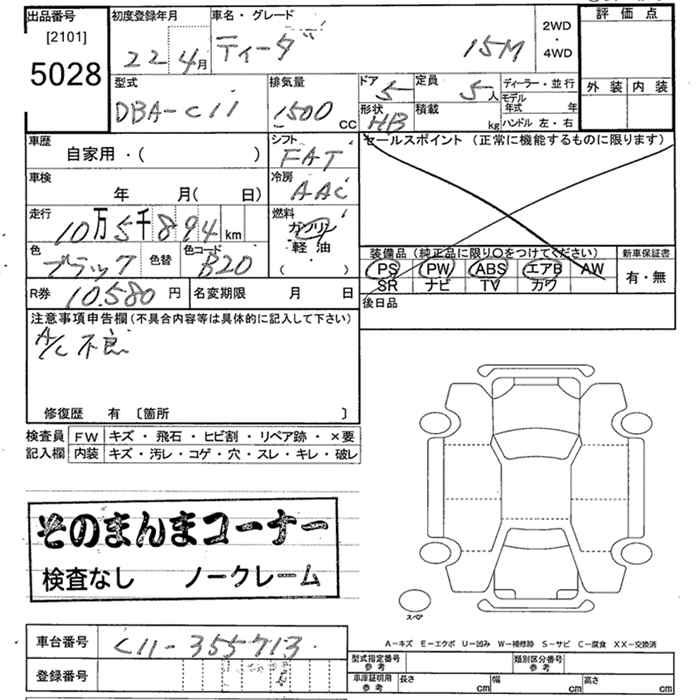 出品番号 [2101] 5028
初度登録年月 22年4月
車名・グレード ティーダ 15M
2WD・4WD
評価点
外装 内装
型式 DBA-C11
排気量 1500 CC
ドア 5
定員 5人
形状 HB
積載 kg
ディーラー・並行
モデル年式 年
ハンドル 左・右
車歴 自家用・( )
シフト FAT
セールスポイント (正常に機能するものに限ります)
車検 年 月( 日)
冷房 AAC
走行 10万5千894km
燃料 ガソリン 軽油 ( ・ )
色 ブラック 色替
色コード B20
装備品 (純正品に限り○をつけてください)
PS PW ABS エアB AW
SR ナビ TV カワ
新車保証書 有・無
R券 10,580円 名変期限 月 日
後日品
注意事項申告欄 (不具合内容等は具体的に記入して下さい)
A/C 不良
修復歴 有 〔箇所 〕
検査員記入欄
FW キズ・飛石・ヒビ割・リペア跡・×要
内装 キズ・汚レ・コゲ・穴・スレ・キレ・破レ
そのまんまコーナー
検査なし ノークレーム
スペア
A-キズ E-エクボ U-凹み W-補修跡 S-サビ C-腐食 XX-交換済
車台番号 C11-355713
登録番号
型式指定番号 参考
類別区分番号 参考
車庫証明用 参考 長さ cm 幅 cm 高さ cm